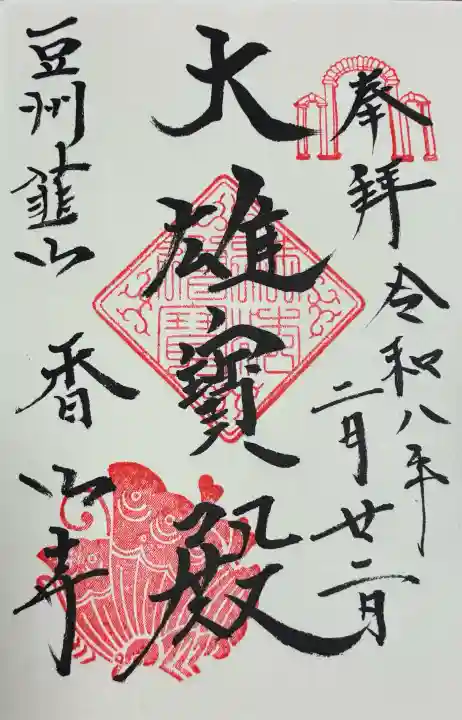 奉拜
令和八年
二月廿二日
大雄寶殿
豆州韮山 香山寺